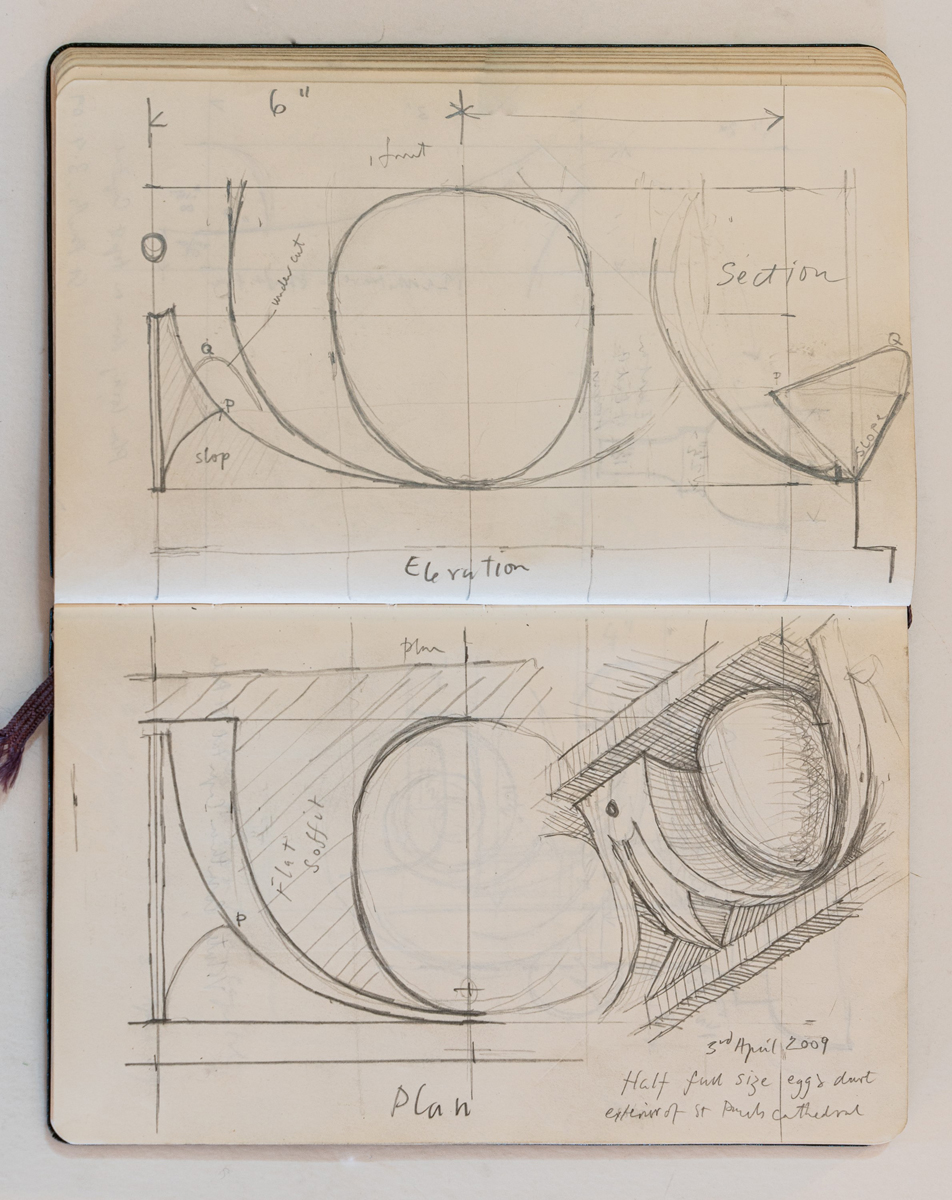 6"
front
undercut
Section
Q
P
slop
P
Q
slope
Elevation
plan
Flat
Soffit
P
3rd April 2009
Plan
Half full size egg & dart
exterior of St Pauls Cathedral